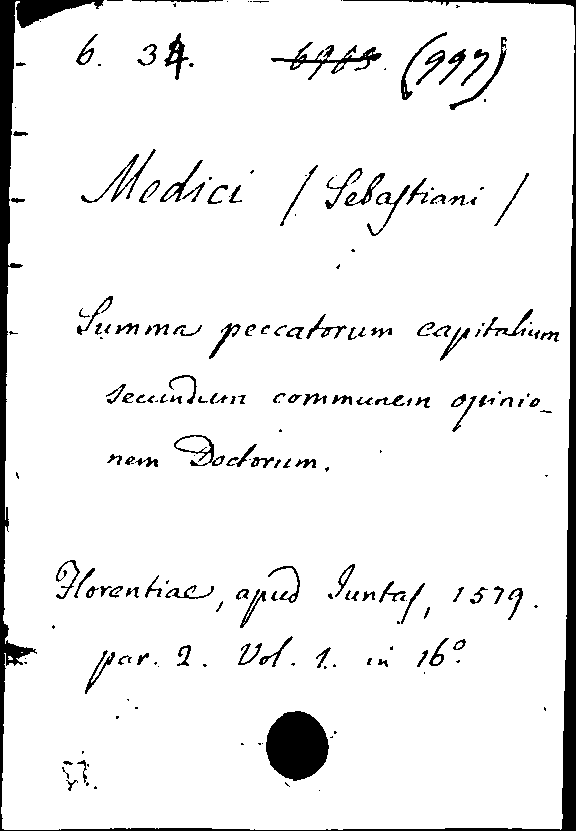 6. 34. 6965. (997)
Medici / Sebastiani /
Summa peccatorum capitalium
secundum communem opinio-
nem Doctorum.
Florentiae, apud Juntas, 1579.
par. 2. Vol. 1. in 16°.